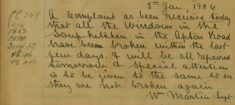 5th Jan 1906
A Complaint as been received today
that all the Windows in the
Soup-kitchen in the Apton Road
have been broken within the last
few days. & will be all repaired
tomorrow. A special attention
is to be given to the same to see
they are not broken again
Wm Martin Sgt
PC 269